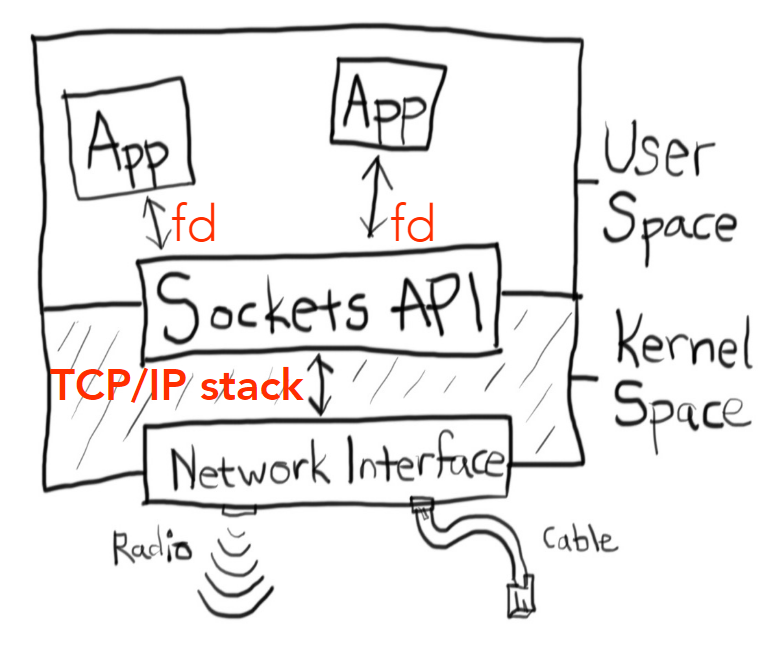 App
App
User
Space
fd
fd
Sockets API
Kernel
Space
TCP/IP stack
Network Interface
Radio
Cable